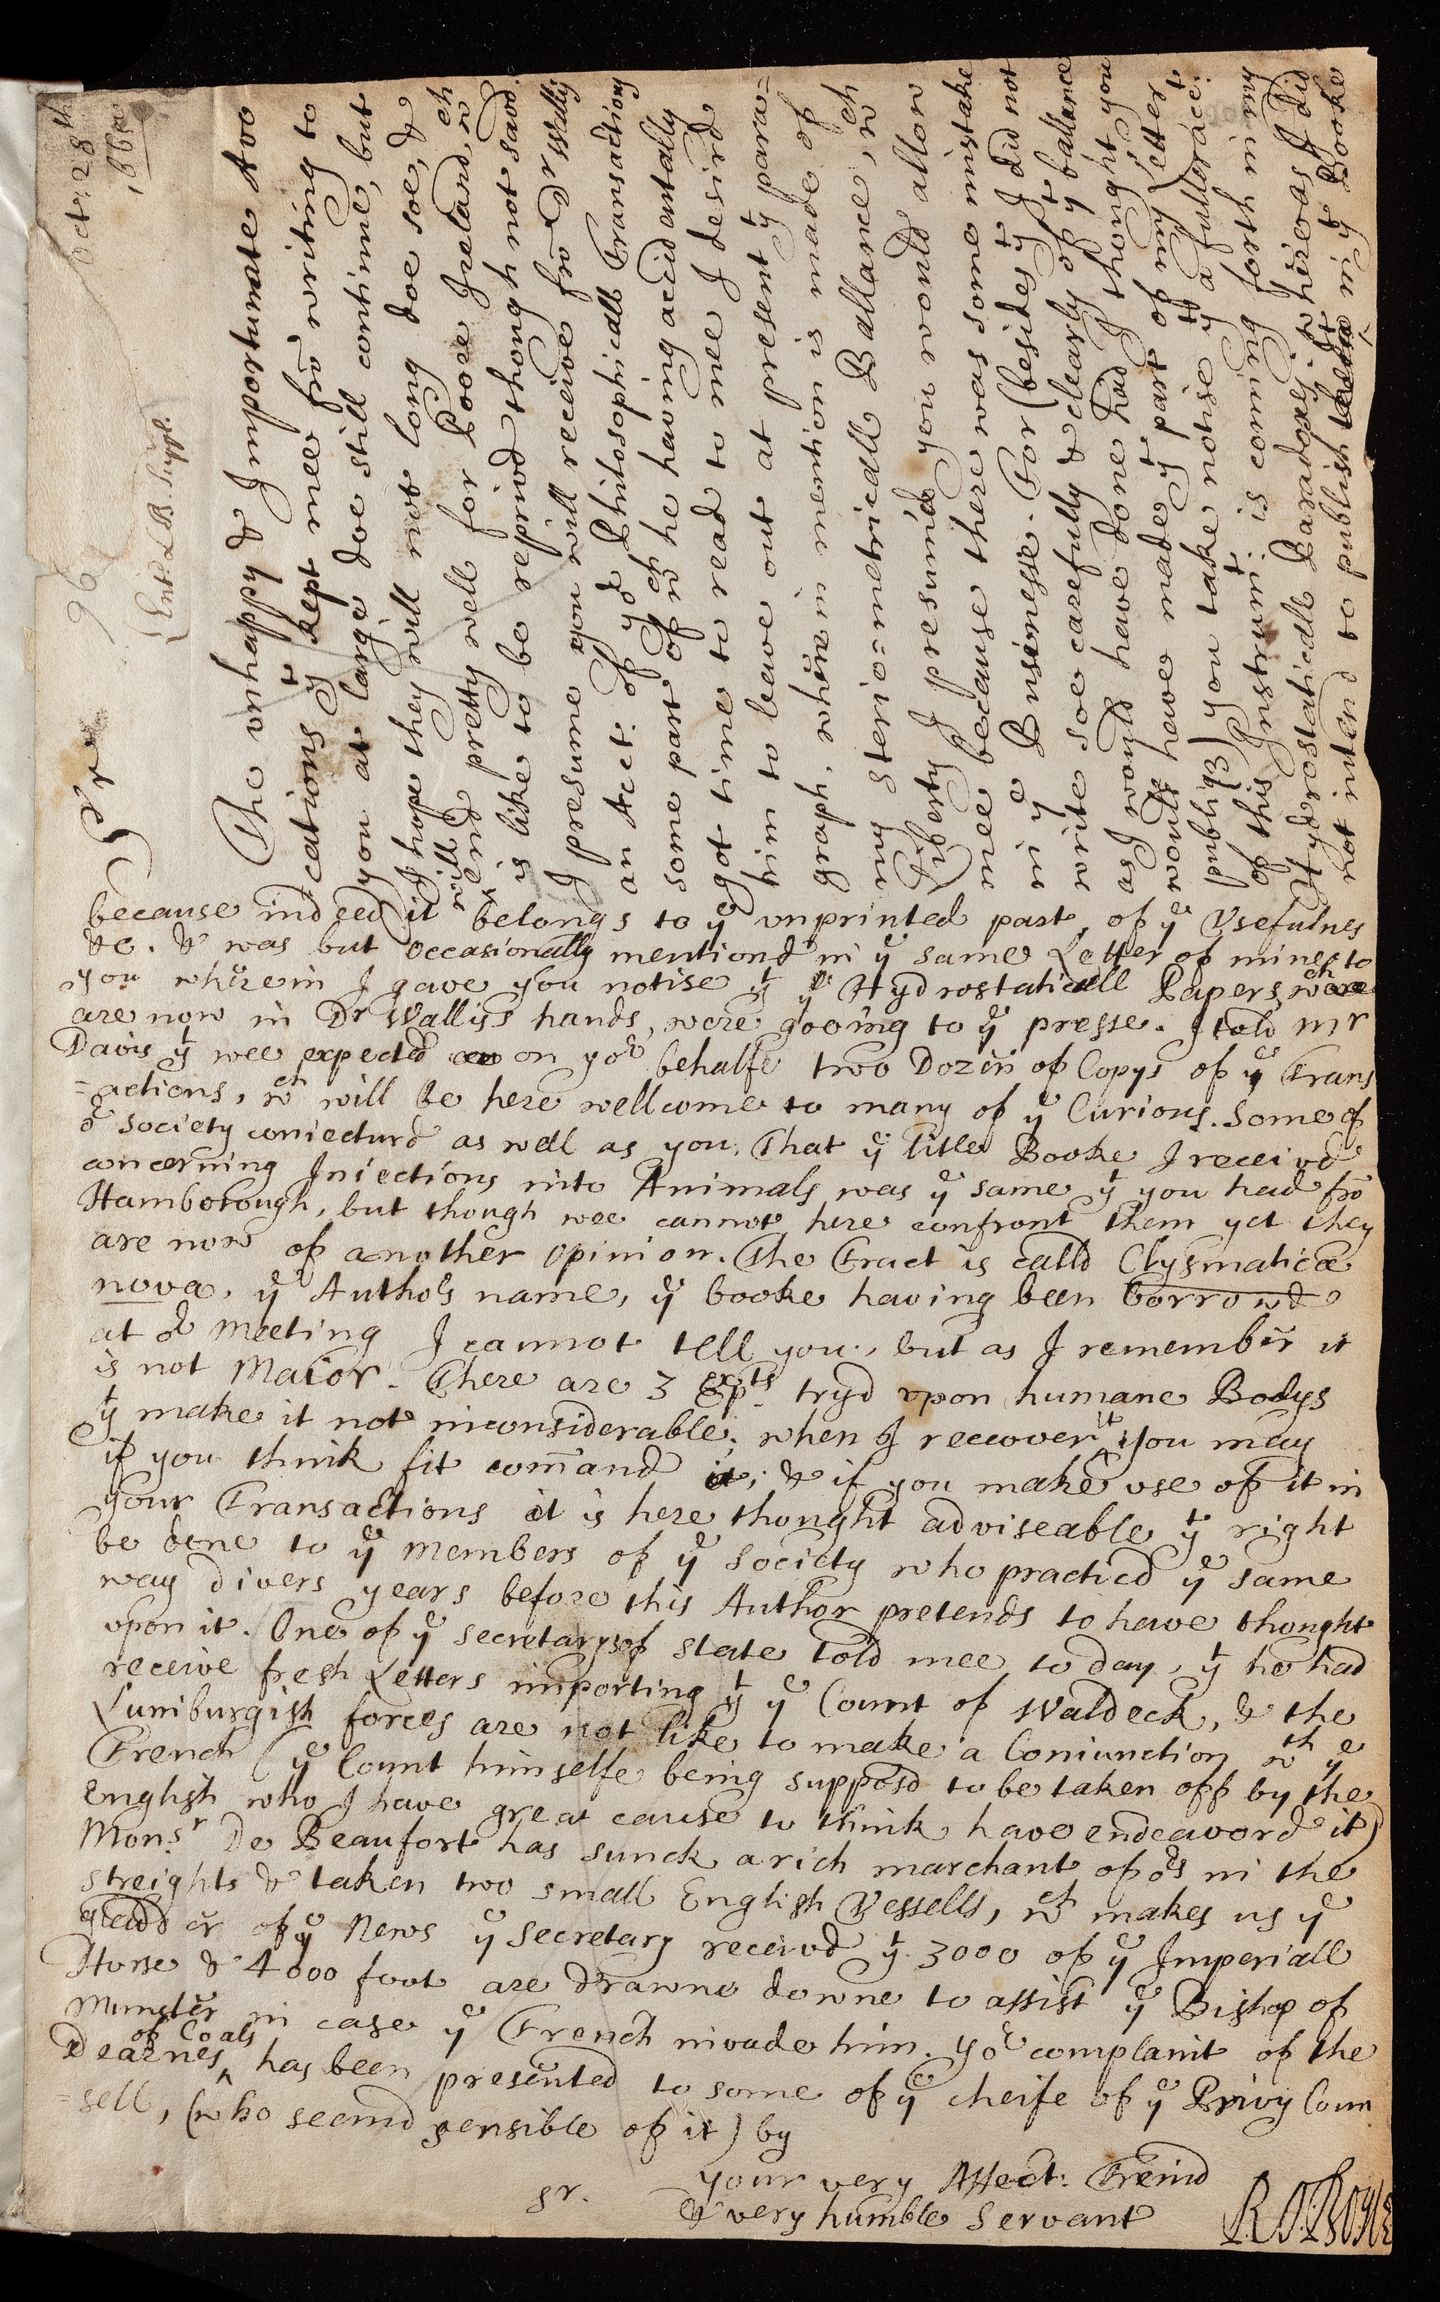 Oct. 28th
1665
96
(Entd. LB. Suppl.)
Sr
The unhappy & Importunate Avo
cations yt kept mee fro writing to
you at large doe still continue, but
I hope they will not long doe soe, &
will end pretty well for Poore Ireland, wch
is like to be reprivd though not savd.
I presume you will receive fro Dr Wallis
an Acct: of yor Philosophicall Transactions
some part of wch he having accidentally
got time to read to mee I desird
him to leave out at present ye para=
graph, wherein mention is made of
my sterio=metricall Ballance, wch
Liberty I presumd you would allow
mee because there was some mistake
in ye Businesse. For (besides yt I did not
write soe carefully & clearly of yt ballance
as I would have done had I thought you
would have made yt part of my Letter
publiq3) you take notise yt a full acct:
of this Instrumt: is coming forth in my
Hydrostaticall Paradoxes; whereas I did
not intend to publish it in yt Booke
because indeed it belongs to ye unprinted part, of ye Usefulnes
&c. & was but occasionally mentiond in ye same Letter of mine to
you wherein I gave you notise yt ye Hydrostaticall Papers, wch
are now in Dr Wallis's hands, were gooing to ye presse. I told Mr
Davis yt wee expected on yor behalfe two Dozen of Copys of ye Trans
=actions, wch will be here wellcome to many of ye Curious. Some of
or Society coniecturd as well as you, That ye little Booke I receivd
concerning Iniections into Animals, was ye same yt you had fro
Hamborough, but though wee cannot here confront them yet they
are now of another opinion. The Tract is calld Clysmatica
nova, ye Authors name, ye booke having been borrowd
at or Meeting I cannot tell you, but as I remember it
is not Maior. There are 3 Expts tryd upon humane Bodys
yt make it not inconsiderable; when I reccover it you may
if you think fit comand it; & if you make use of it in
your Transactions it is here thought adviseable yt right
be done to ye Members of ye Society who practicd ye same
way divers years before this Author pretends to have thought
upon it. One of ye Secretarys of State told mee to day, yt he had
receive fresh Letters importing yt ye Count of Waldeck, & the
Luniburgish forces are not like to make a Coniunction wth ye
French (ye Count himselfe being supposd to be taken off by the
English who I have great cause to think have endeavord it)
Monsr De Beaufort has sunck a rich marchant of ors in the
streights & taken two small English Vessells, wch makes us ye
gladder of ye News ye Secretary receivd yt 3000 of ye Imperiall
Horse & 4000 foot are drawne downe to assist ye Bishop of
Munster in case ye French invade him. Yor complaint of the
Dearnes of Coals has been presented to some of ye cheife of ye Privy Coun
=sell, (who seemd sensible of it) by
Sr. your very Affect: Freind
& very humble Servant
Ro: Boyle